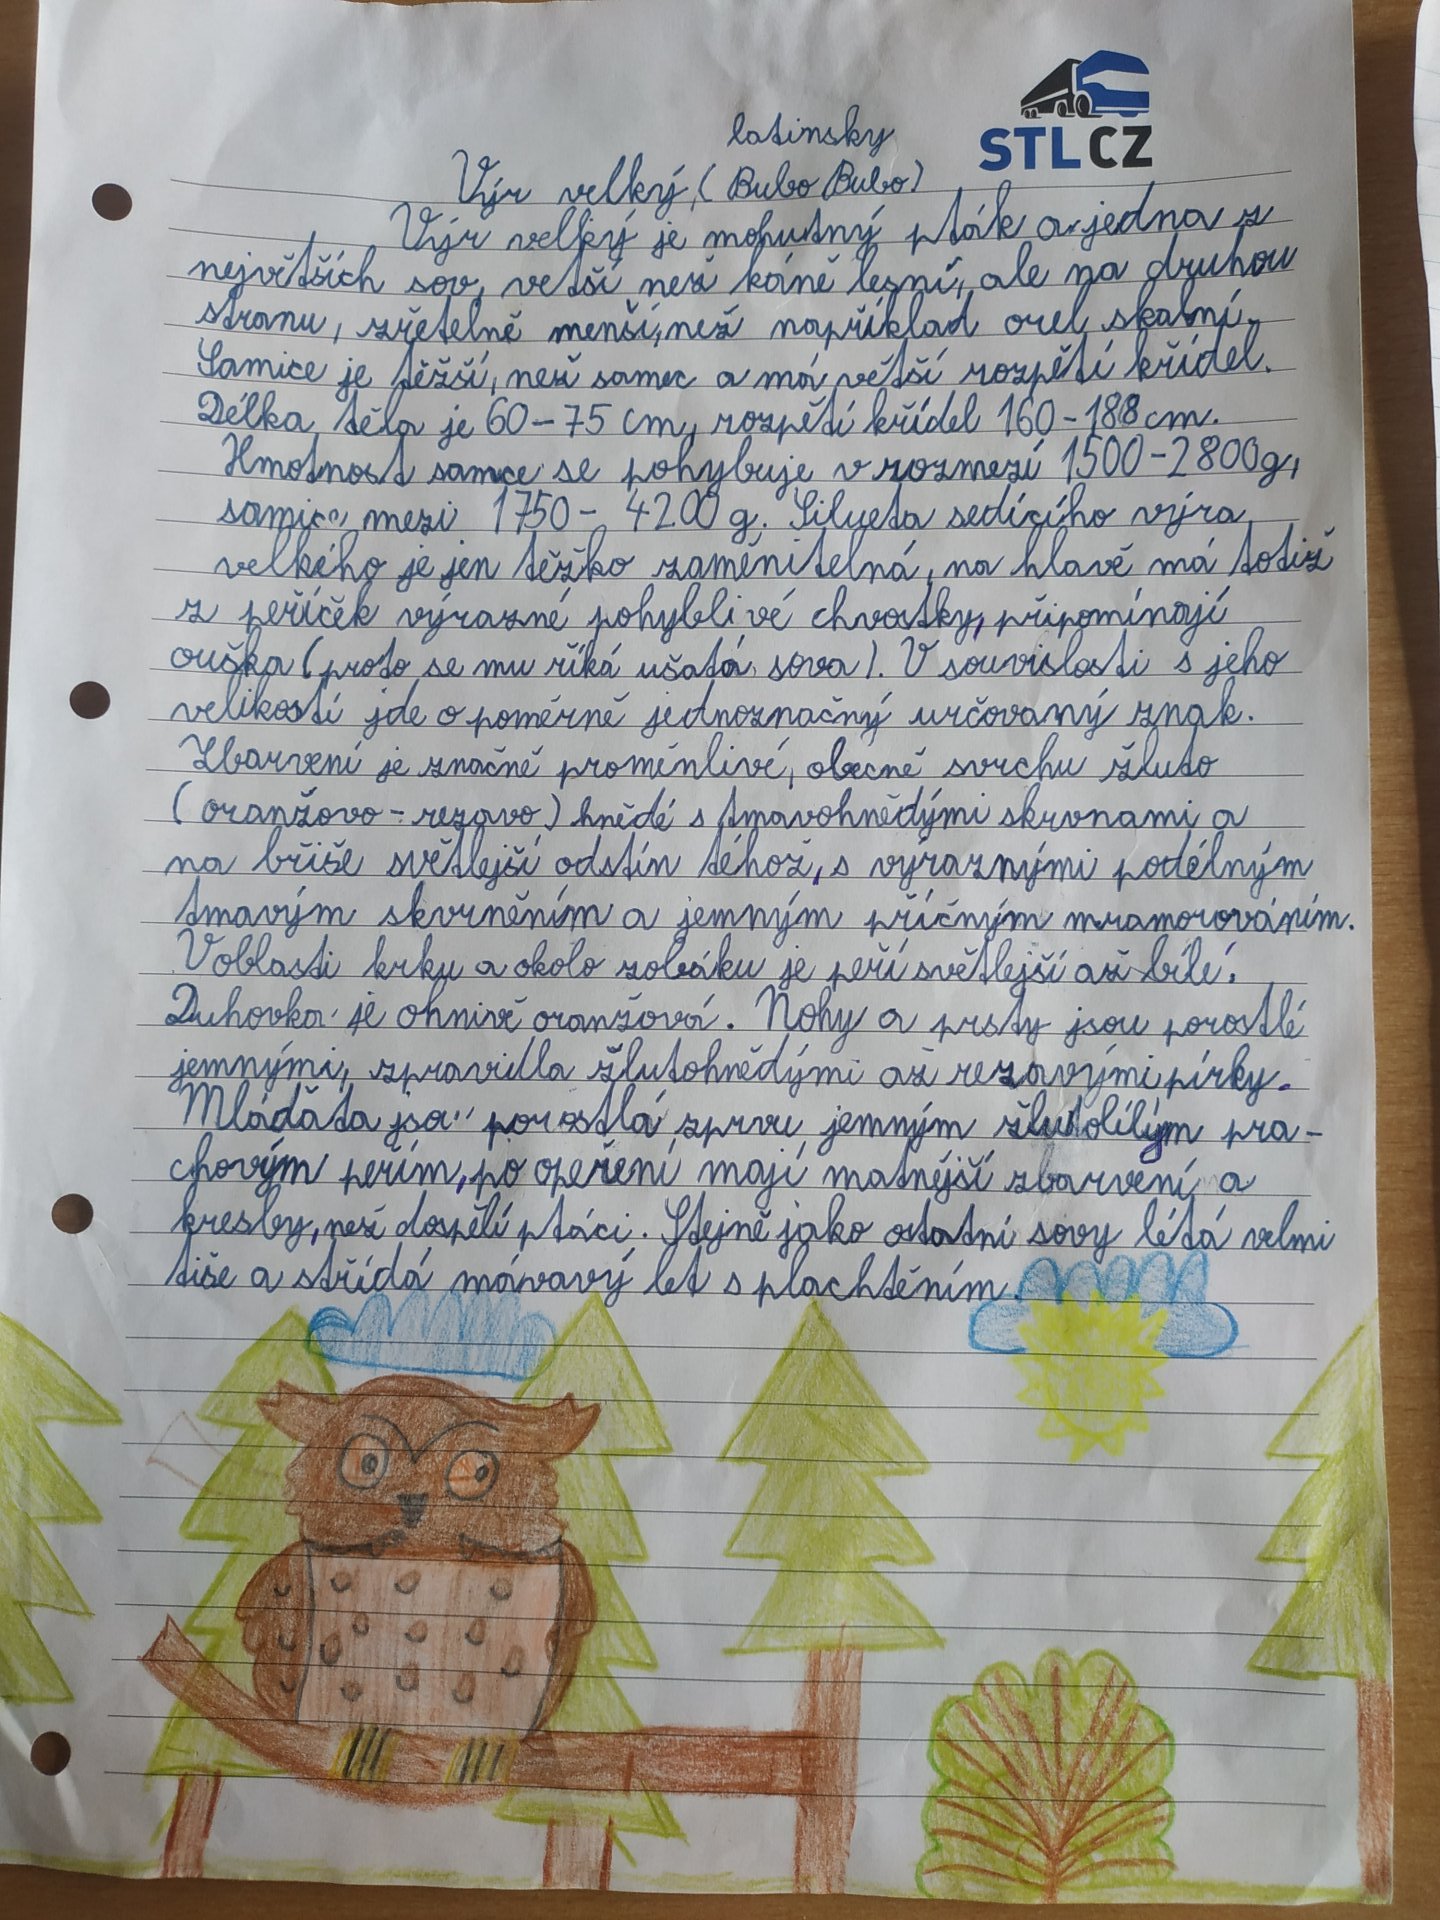 STLCZ
latinsky
Výr velký, (Bubo Bubo)
Výr velký je mohutný pták a jedna z
největších sov, vetší než káně lesní, ale na druhou
stranu, zřetelně menší, než například orel skalní.
Samice je těžší, než samec a má větší rozpětí křídel.
Délka těla je 60-75 cm, rozpětí křídel 160-188 cm.
Hmotnost samce se pohybuje v rozmezí 1500-2800g,
samice mezi 1750- 4200 g. Silueta sedícího výra
velkého je jen těžko zaměnitelná, na hlavě má totiž
z peříček výrazné pohyblivé chvostky, připomínají
ouška (proto se mu říká ušatá sova). V souvislosti s jeho
velikostí jde o poměrně jednoznačný určovaný znak.
Zbarvení je značně proměnlivé, obecně svrchu žluto
(oranžovo-rezavo) hnědé s tmavohnědými skvrnami a
na břiše světlejší odstín téhož, s výraznými podélným
tmavým skvrněním a jemným příčným mramorováním.
V oblasti krku a okolo zobáku je peří světlejší až bílé.
Duhovka je ohnivě oranžová. Nohy a prsty jsou porostlé
jemnými, zpravidla žlutohnědými až rezavými pírky.
Mláďata jsou porostlá zprvu jemným pra-
chovým peřím, po opeření mají matnější zbarvení a
kresby, než dospělí ptáci. Stejně jako ostatní sovy létá velmi
tiše a střídá mávavý let s plachtěním.